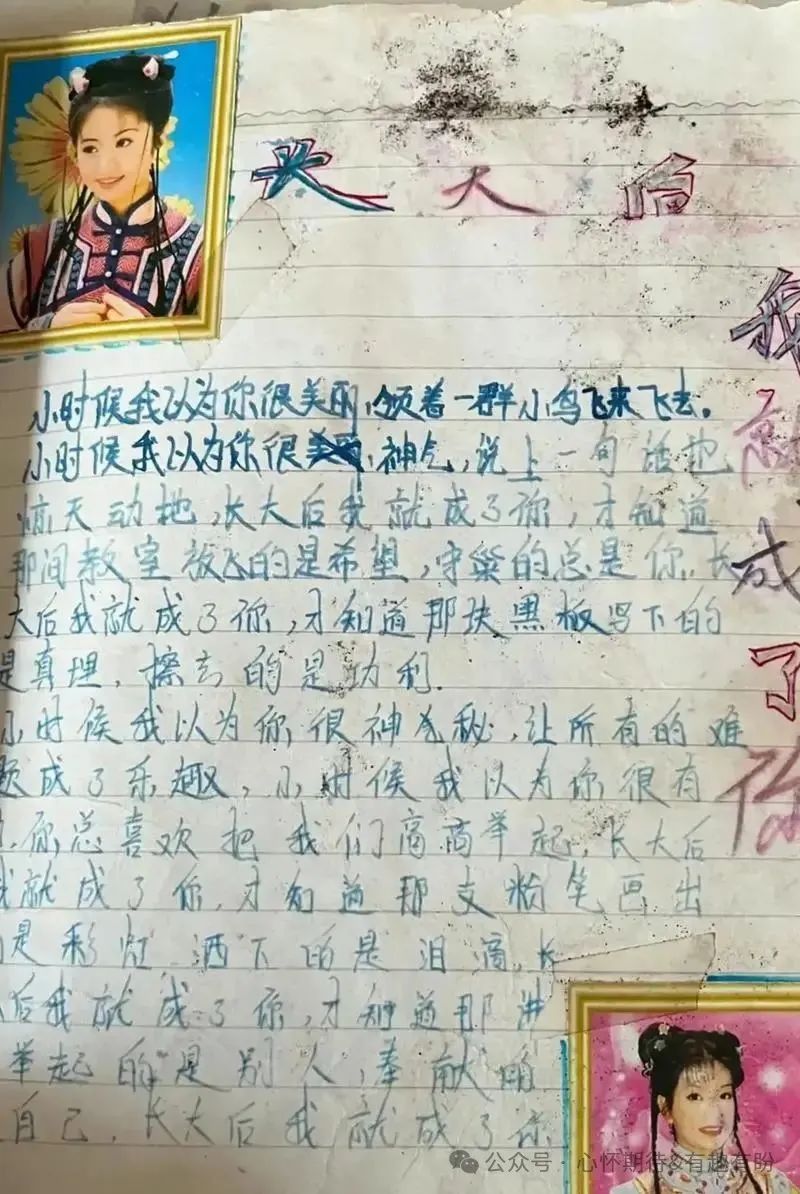 长大后
我就成了你
小时候我以为你很美丽,领着一群小鸟飞来飞去。
小时候我以为你很神气,说上一句话也
惊天动地,长大后我就成了你,才知道
那间教室放飞的是希望,守巢的总是你,长
大后我就成了你,才知道那块黑板写下的
是真理,擦去的是功利.
小时候我以为你很神秘,让所有的难
题成了乐趣,小时候我以为你很有
,你总喜欢把我们高高举起,长大后
我就成了你,才知道那支粉笔画出
的是彩虹,洒下的是泪滴,长
后我就成了你,才知道那讲
举起的是别人,奉献的
自己,长大后我就成了你
公众号·心怀期待&有趣有盼